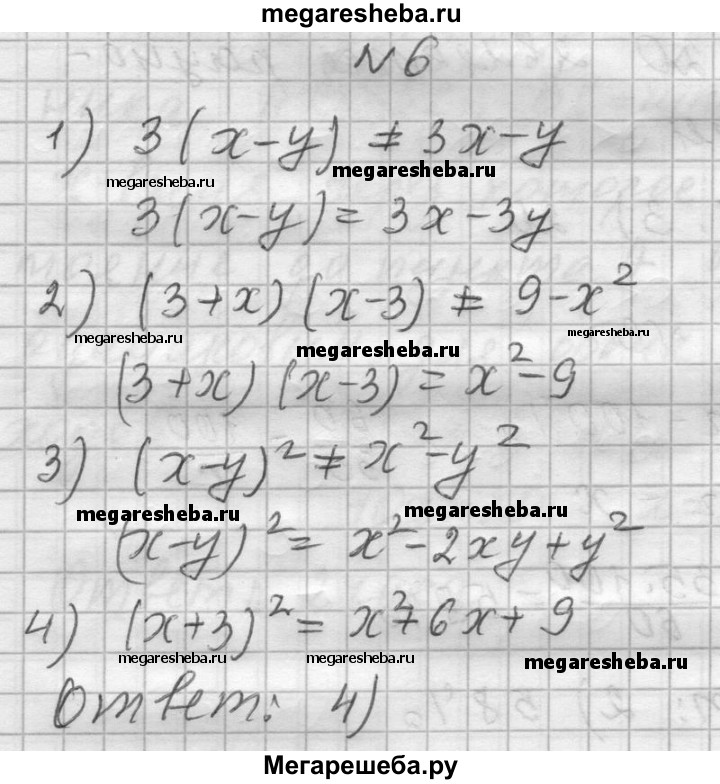 megaresheba.ru
№6
1) 3(x-y) ≠ 3x-y
megaresheba.ru megaresheba.ru
3(x-y) = 3x-3y
2) (3+x)(x-3) ≠ 9-x²
megaresheba.ru megaresheba.ru megaresheba.ru
(3+x)(x-3) = x²-9
3) (x-y)² ≠ x²-y²
megaresheba.ru megaresheba.ru
(x-y)² = x²-2xy+y²
4) (x+3)² = x²+6x+9
megaresheba.ru megaresheba.ru megaresheba.ru
Ответ: 4)
Мегарешеба.ру